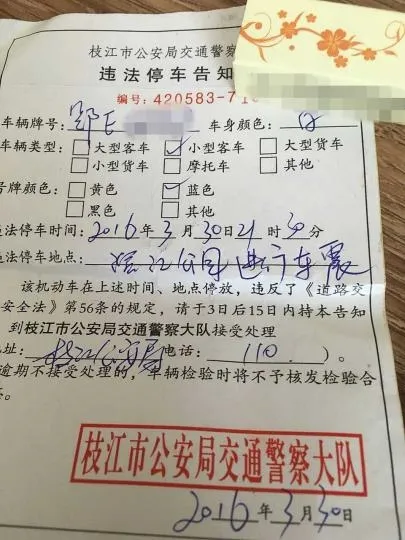 枝江市公安局交通警察
违法停车告知
编号:420583-71
车辆牌号:鄂E 车身颜色:白
车辆类型: 大型客车 小型客车 大型货车
小型货车 摩托车 其他
号牌颜色: 黄色 蓝色
黑色 其他
违法停车时间:2016年3月30日21时30分
违法停车地点:滨江公园进行车震
该机动车在上述时间、地点停放,违反了《道路交
安全法》第56条的规定,请于3日后15日内持本告知
到枝江市公安局交通警察大队接受处理
地址:枝江公安局电话:110)。
逾期不接受处理的,车辆检验时将不予核发检验合
枝江市公安局交通警察大队
2016年3月30日